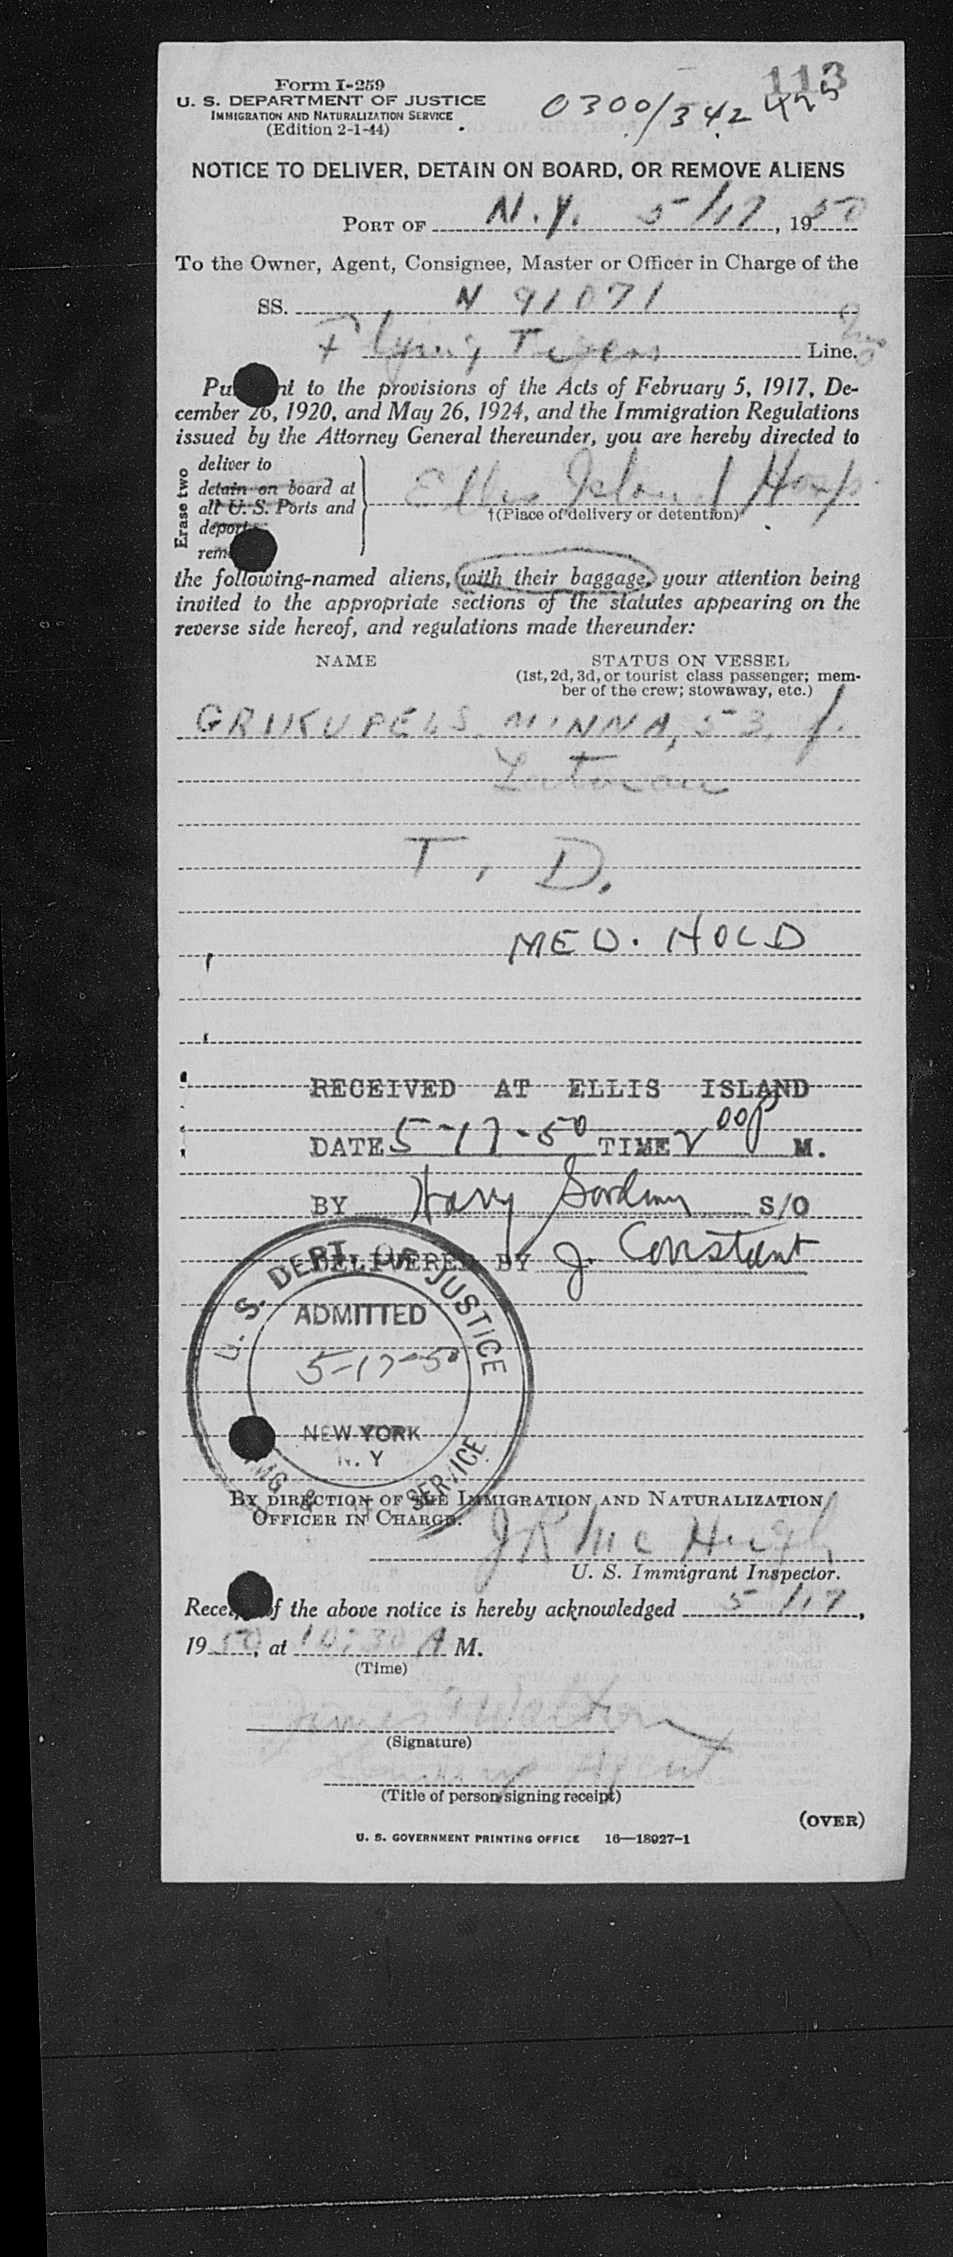 113
Form I-259
U. S. DEPARTMENT OF JUSTICE
IMMIGRATION AND NATURALIZATION SERVICE
(Edition 2-1-44)
0300/342 425
NOTICE TO DELIVER, DETAIN ON BOARD, OR REMOVE ALIENS
PORT OF N.Y. 5/17, 1950
To the Owner, Agent, Consignee, Master or Officer in Charge of the
SS. N 91071
Flying Tigers Line.
Pu nt to the provisions of the Acts of February 5, 1917, De-
cember 26, 1920, and May 26, 1924, and the Immigration Regulations
issued by the Attorney General thereunder, you are hereby directed to
Erase two
deliver to
detain on board at
all U. S. Ports and
deport
rem
Ellis Island Hosp.
†(Place of delivery or detention)
the following-named aliens, with their baggage, your attention being
invited to the appropriate sections of the statutes appearing on the
reverse side hereof, and regulations made thereunder:
NAME STATUS ON VESSEL
(1st, 2d, 3d, or tourist class passenger; mem-
ber of the crew; stowaway, etc.)
GRIKUPELS MINNA, 53, f.
T. D.
MED. HOLD
RECEIVED AT ELLIS ISLAND
DATE 5-17-50 TIME 2 00 P M.
BY Harry S/O
DELIVERED BY J. Constant
U. S. DEPT. OF JUSTICE
ADMITTED
5-17-50
NEW YORK
N. Y
IMG & SERVICE
BY DIRECTION OF THE IMMIGRATION AND NATURALIZATION
OFFICER IN CHARGE.
JR McHugh
U. S. Immigrant Inspector.
Recei of the above notice is hereby acknowledged 5/17,
1950, at 10:30 A M.
(Time)
James Walton
(Signature)
Agent
(Title of person signing receipt)
(OVER)
U. S. GOVERNMENT PRINTING OFFICE 16—18027-1